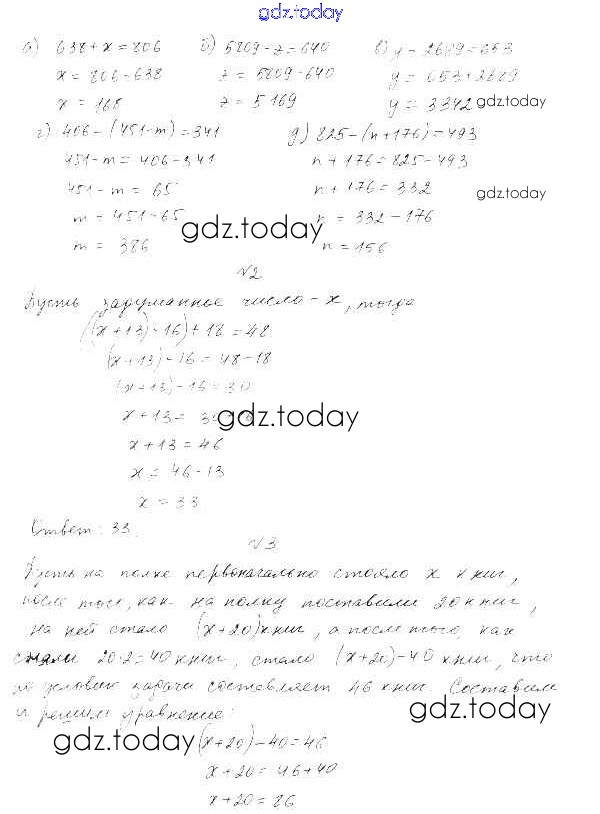 gdz.today
а) 638+x=806 б) 5809-z=640 в) y-2689=653
x=806-638 z=5809-640 y=653+2689
x=168 z=5169 y=3342 gdz.today
г) 406-(451-m)=341 д) 825-(n+176)=493
451-m=406-341 n+176=825-493
451-m=65 n+176=332 gdz.today
m=451-65 n=332-176
gdz.today
m=386 n=156
№2
Пусть задуманное число - x, тогда
((x+13)-16)+18=48
(x+13)-16=48-18
(x+13)-16=30
x+13= gdz.today
x+13=46
x=46-13
x=33
Ответ: 33.
№3
Пусть на полке первоначально стояло x книг,
после того, как на полку поставили 20 книг,
на ней стало (x+20) книг, а после того, как
сняли 20·2=40 книг, стало (x+20)-40 книг, что
по условию задачи составляет 46 книг. Составим
и решим уравнение: gdz.today
gdz.today (x+20)-40=46
x+20=46+40
x+20=86